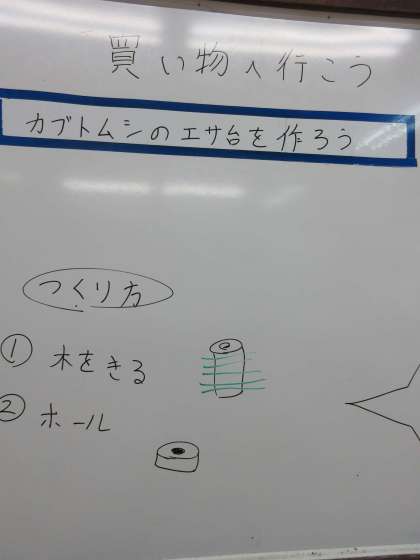 買い物へ行こう
カブトムシのエサ台を作ろう
つくり方
① 木をきる
② ホール